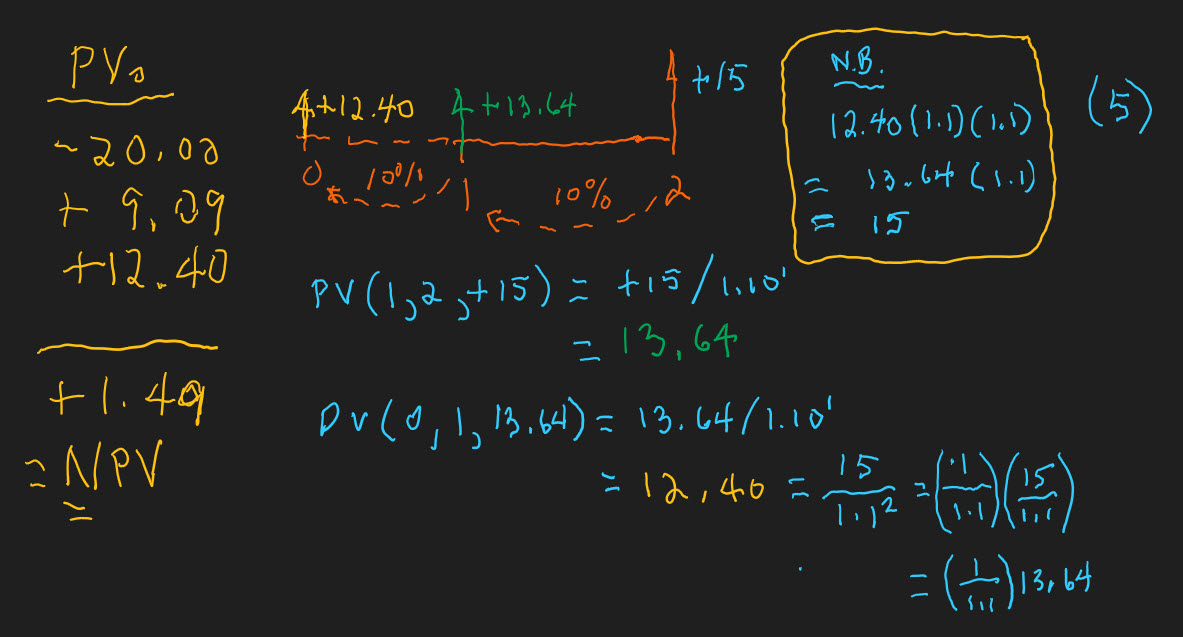 PV₀
-20.00
+ 9.09
+12.40
+1.49
= NPV
+12.40
+13.64
+15
0
10%
1
10%
2
N.B.
12.40(1.1)(1.1)
= 13.64(1.1)
= 15
(5)
PV(1,2,+15) = +15/1.10¹
= 13.64
PV(0,1,13.64) = 13.64/1.10¹
= 12.40 = 15/1.1² = (1/1.1)(15/1.1)
= (1/1.1)13.64